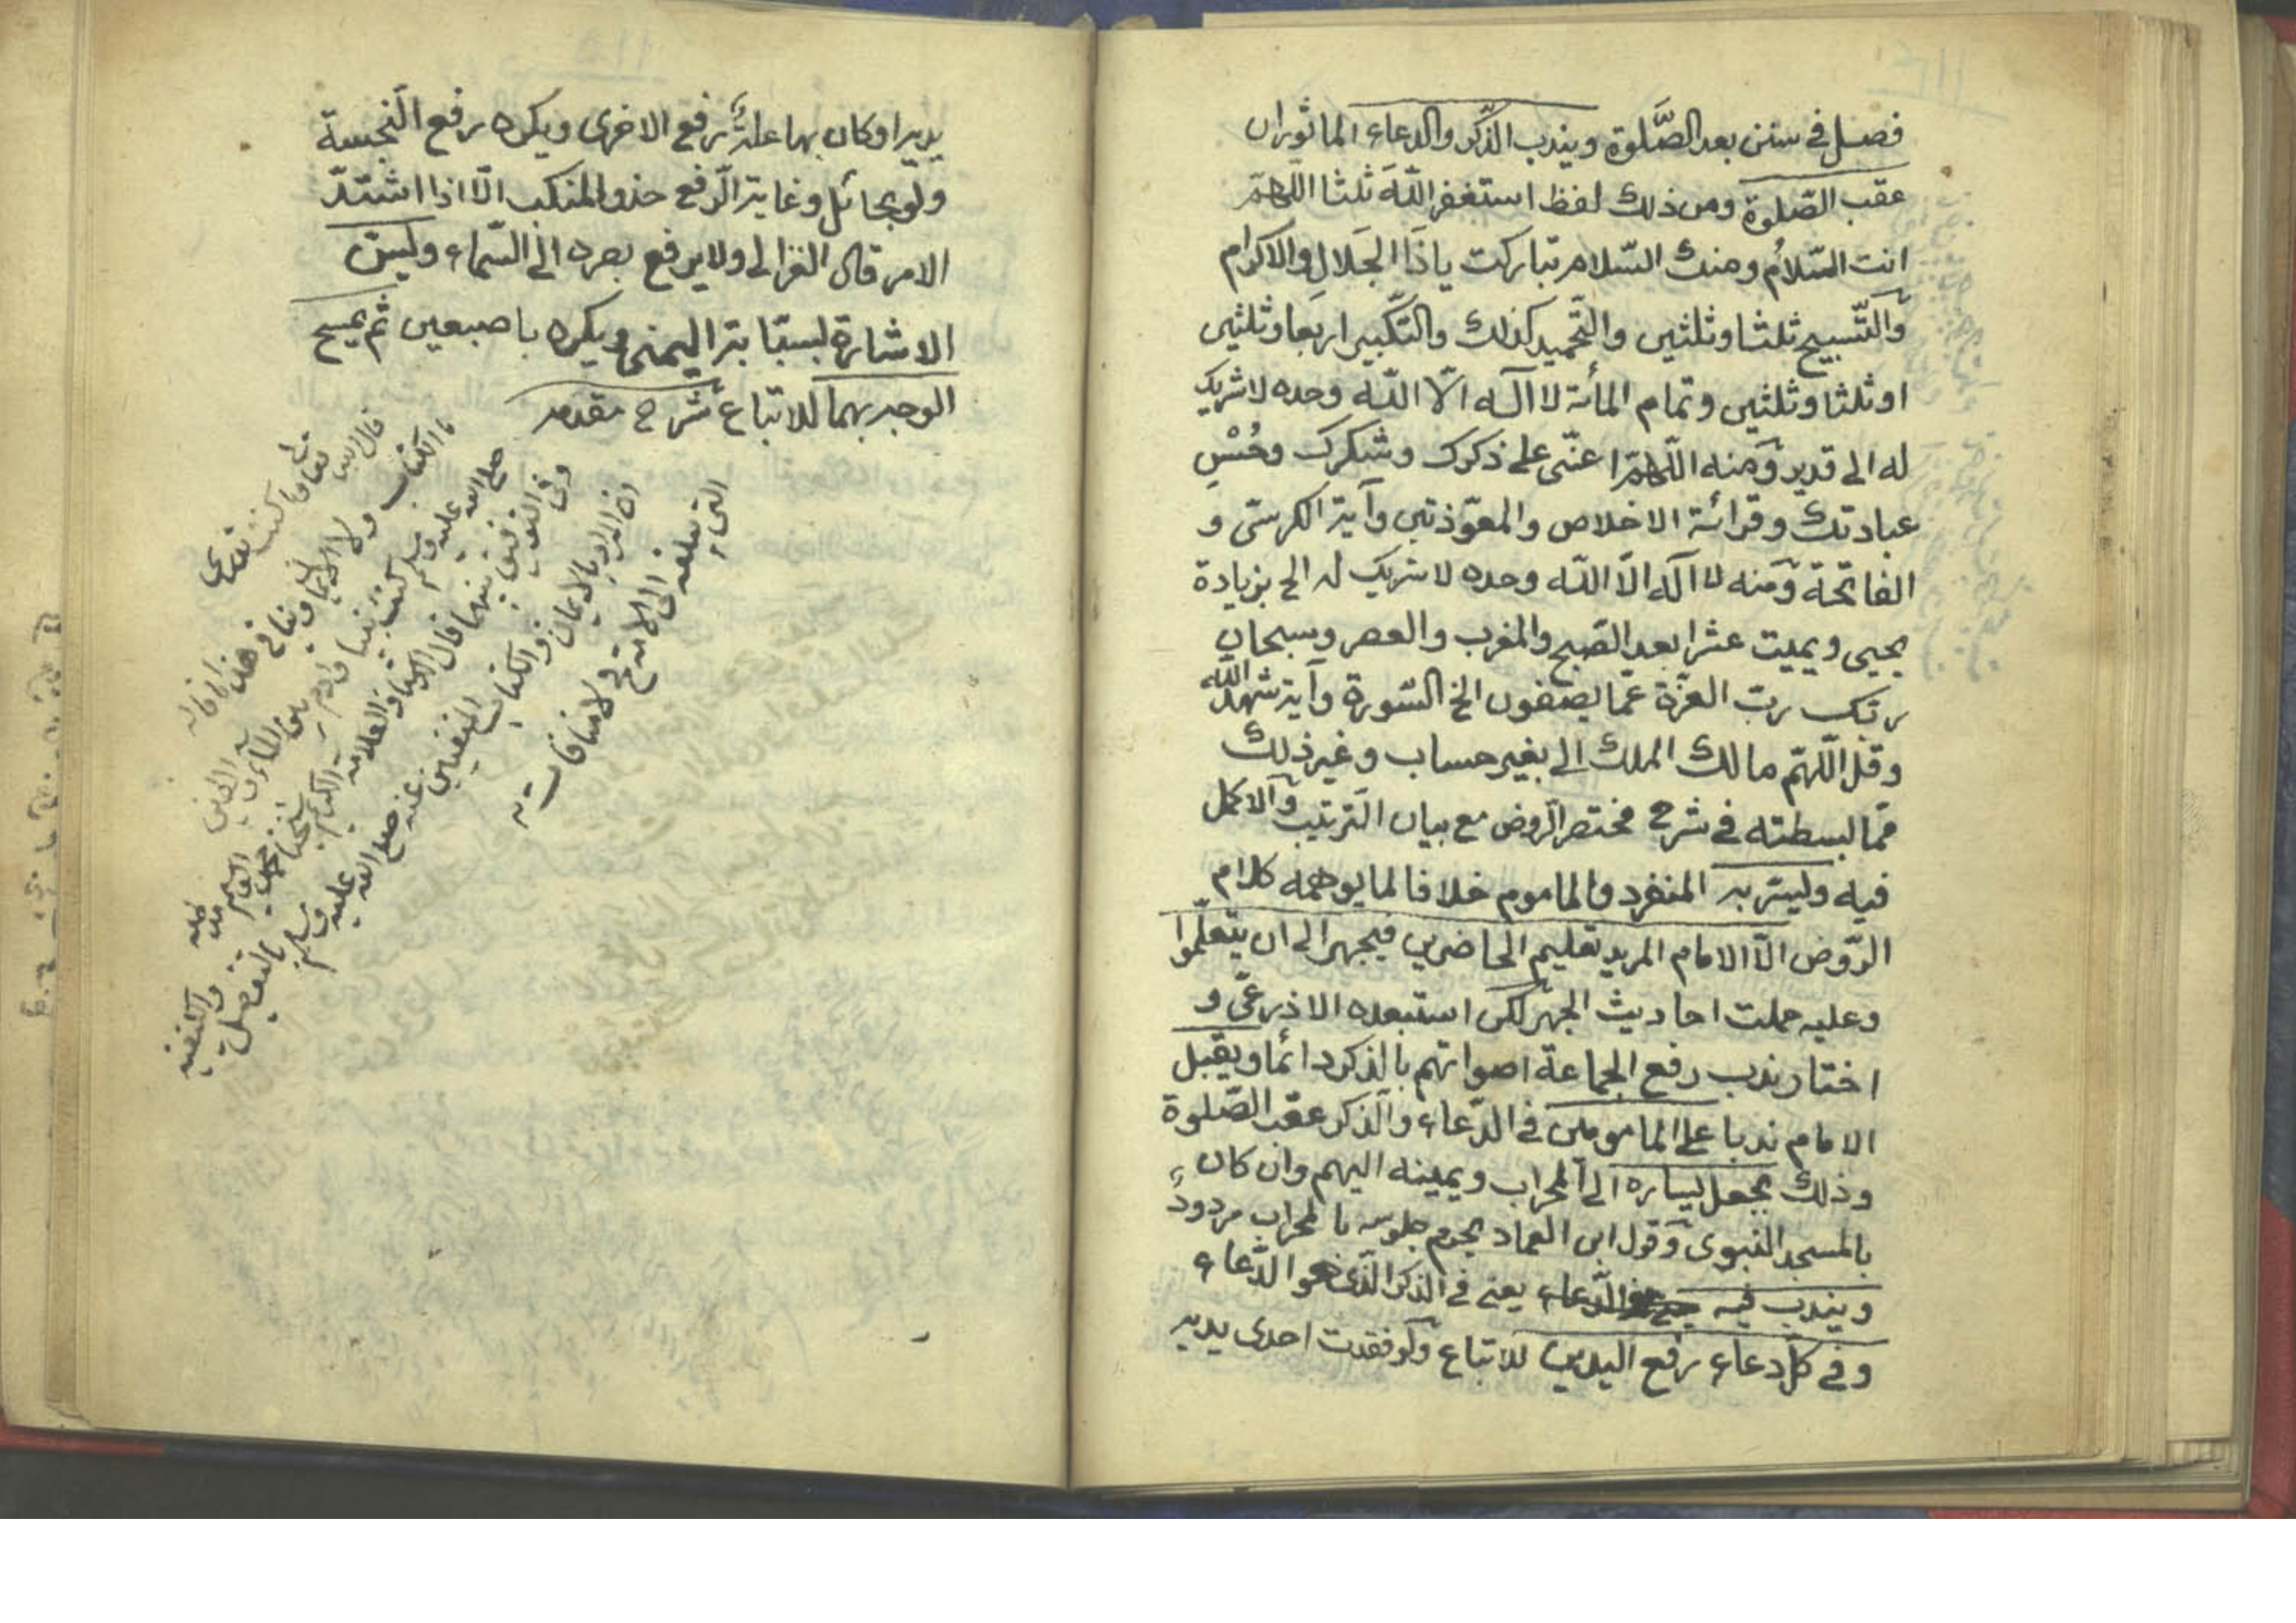 فصل في سنن بعد الصَّلوة ويندب الذّكر والدعاء الماثوران
عقب الصّلوة ومن ذلك لفظ استغفر اللّهَ ثلثا اللّهمّ
انت السّلامُ ومنك السّلام تباركت ياذَا الجَلالِ والاكرام
والتّسبيح ثلثا وثلثين والتّحميد كذلك والتّكبير اربعا وثلثين
او ثلثا وثلثين وتمام المأئة لا اله الّا اللّه وحده لا شريك
له الى قدير ومنه اللّهمّ اعنّى على ذكرك وشكرك وحُسْنِ
عبادتك وقرائة الاخلاص والمعوّذتين وآية الكرسّى و
الفاتحة ومنه لا اله الّا اللّه وحده لا شريك له الخ بزيادة
يحيى ويميت عشرا بعد الصّبح والمغرب والعصر وسبحان
ربّك ربّ العزّة عمّا يصفون الخ السّورة وآية شهد اللّه
وقل اللّهمّ مالك الملك الى بغير حساب وغير ذلك
ممّا بسطته في شرح مختصر الرّوض مع بيان التّرتيب والاكمل
فيه وليسّر به المنفرد والماموم خلافا لما يوهمه كلام
الرّوض الّا الامام المريد تعليم الحاضرين فيجهر الى ان يتعلّموا
وعليه حملت احاديث الجهر لكن استبعده الاذرعّى و
اختار ندب رفع الجماعة اصواتهم بالذكر دائما ويقبل
الامام ندبا على المامومين في الدّعاء والذكر عقب الصّلوة
وذلك بجعل يساره الى المحراب ويمينه اليهم وان كان
بالمسجد النبوى وقول ابن العماد يحرم جلوسه بالمحراب مردودٌ
ويندب فيه الدّعاء يعنى في الذكر الّذى هو الدّعاء
وفي كلّ دعاء رفع اليدين للاتباع ولو فقدت احدى يديه
يديه او كان بها علةٌ رفع الاخرى ويكره رفع النّجسة
ولو بحائل وغاية الرّفع حذو المنكب الّا اذا اشتدّ
الامر قال الغزالى ولا يرفع بصره الى السّماء وليسنّ
الاشارة بسبّابته اليمنى ويكره باصبعين ثم يمسح
الوجه بهما للاتباع شرح مقدمه
قال اللّه تعالى ما كنت تدرى
ما الكتاب ولا الايمان
صلى الله عليه وسلم كنت نبيا وآدم بين الماء والطين
وفى التوفيق بينهما قال
ان المراد بالايمان والكتاب
عنه صلى الله عليه وسلم
ولا منافات